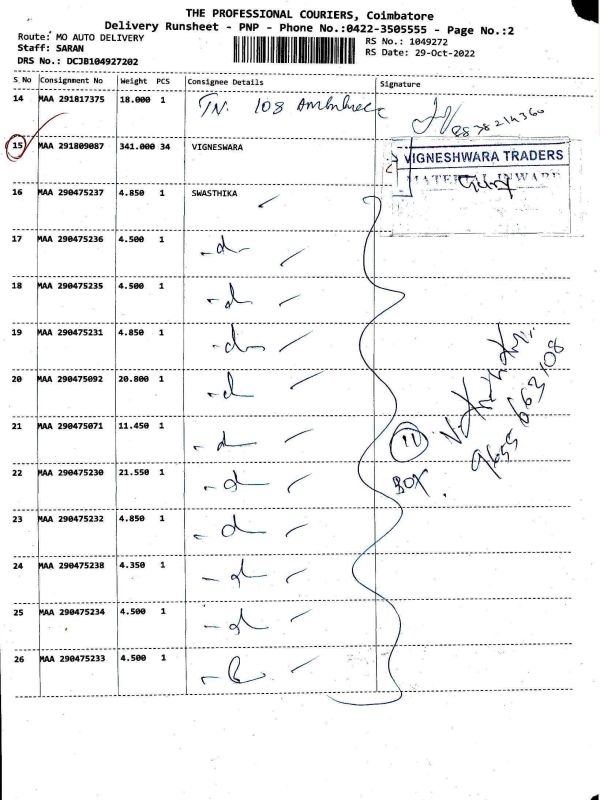 THE PROFESSIONAL COURIERS, Coimbatore
Delivery Runsheet - PNP - Phone No.:0422-3505555 - Page No.:2
Route: MO AUTO DELIVERY
RS No.: 1049272
Staff: SARAN
RS Date: 29-Oct-2022
DRS No.: DCJB104927202
S No Consignment No Weight PCS Consignee Details Signature
14 MAA 291817375 18.000 1 TN. 108
15 MAA 291809087 341.000 34 VIGNESWARA
VIGNESHWARA TRADERS
MATERIAL INWARD
16 MAA 290475237 4.850 1 SWASTHIKA
17 MAA 290475236 4.500 1 -d-
18 MAA 290475235 4.500 1 -d-
19 MAA 290475231 4.850 1 -d-
20 MAA 290475092 20.800 1 -d-
21 MAA 290475071 11.450 1 -d-
11
BOX
9655 663108
22 MAA 290475230 21.550 1 -d-
23 MAA 290475232 4.850 1 -d-
24 MAA 290475238 4.350 1 -d-
25 MAA 290475234 4.500 1 -d-
26 MAA 290475233 4.500 1